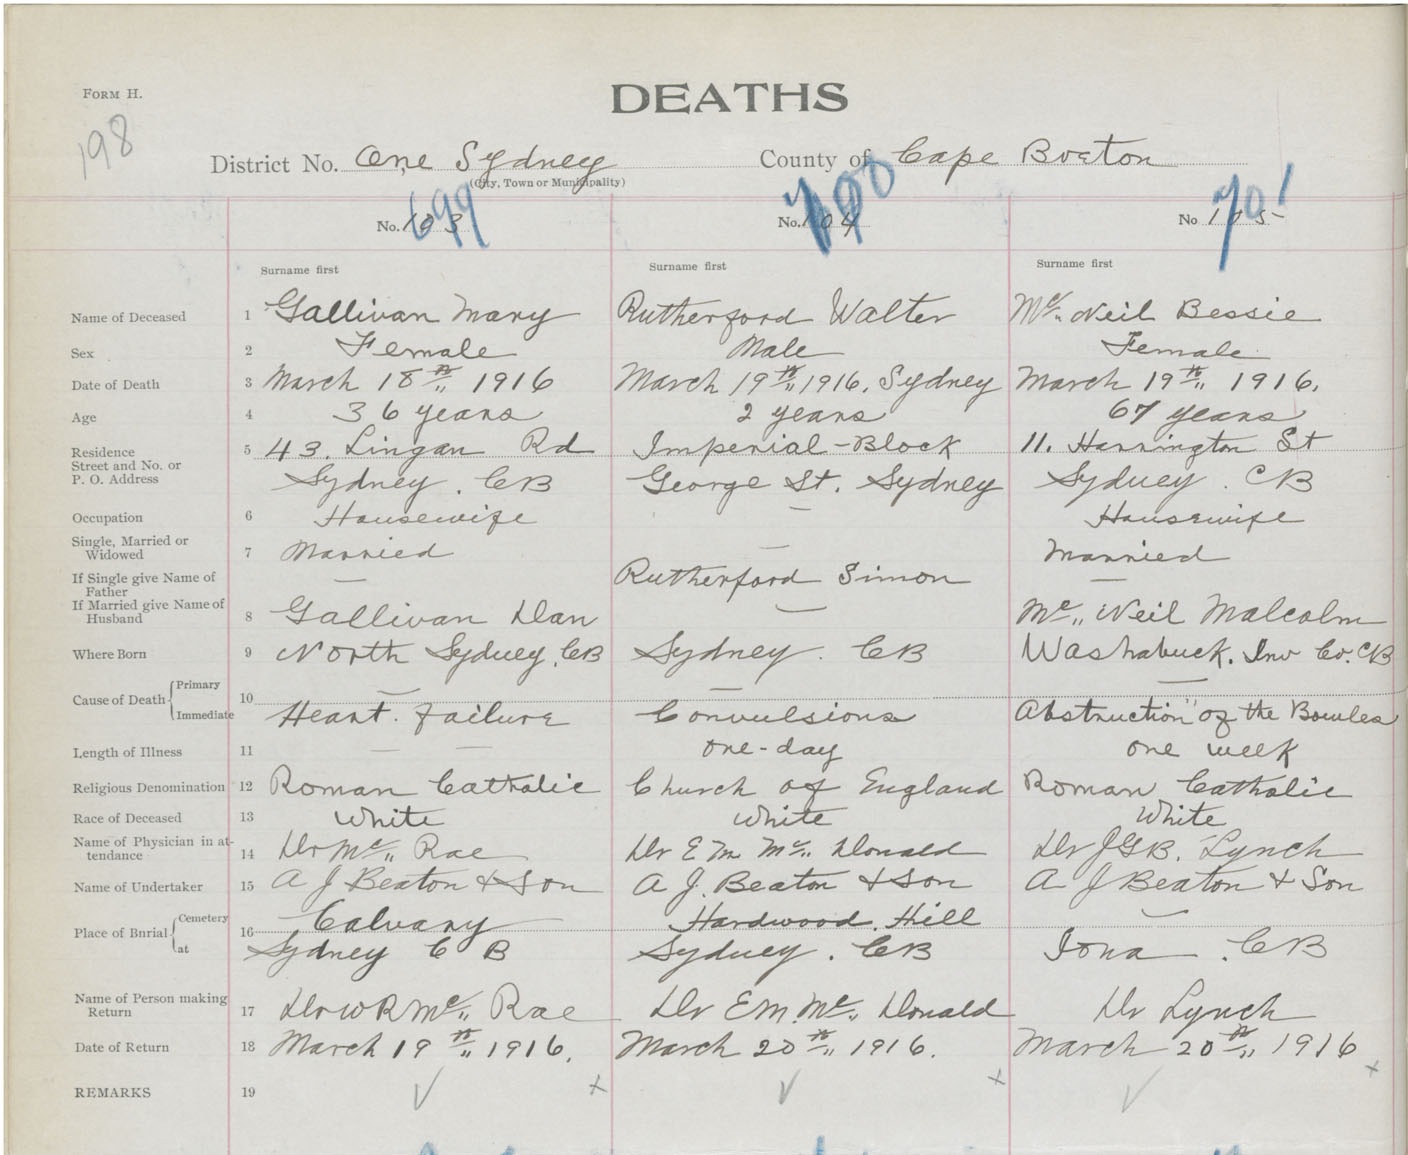 FORM H.
DEATHS
198
District No. One Sydney County of Cape Breton
(City, Town or Municipality)
699 700 701
No. 103 No. 104 No. 105
Surname first Surname first Surname first
Name of Deceased 1 Gallivan Mary Rutherford Walter Mc Neil Bessie
Sex 2 Female Male Female
Date of Death 3 March 18th 1916 March 19th 1916. Sydney March 19th 1916.
Age 4 36 years 2 years 67 years
Residence 5 43. Lingan Rd Imperial-Block 11. Harrington St
Street and No. or
P. O. Address Sydney. CB George St. Sydney Sydney. CB
Occupation 6 Housewife — Housewife
Single, Married or
Widowed 7 Married — Married
If Single give Name of
Father — Rutherford Simon —
If Married give Name of
Husband 8 Gallivan Dan — Mc Neil Malcolm
Where Born 9 North Sydney. CB Sydney. CB Washabuck. Inv Co. CB
Cause of Death Primary 10 — — —
Immediate Heart. failure Convulsions Abstruction of the Bowles
Length of Illness 11 — — one-day one week
Religious Denomination 12 Roman Catholic Church of England Roman Catholic
Race of Deceased 13 White White White
Name of Physician in at-
tendance 14 Dr Mc Rae Dr E M Mc Donald Dr J G B. Lynch
Name of Undertaker 15 A J Beaton & Son A J. Beaton & Son A J Beaton & Son
Place of Burial Cemetery 16 Calvary Hardwood. Hill —
at Sydney C B Sydney. CB Iona. CB
Name of Person making
Return 17 Dr W R Mc Rae Dr E M. Mc Donald Dr Lynch
Date of Return 18 March 19th 1916. March 20th 1916. March 20th 1916
REMARKS 19 ✓ x ✓ x ✓ x